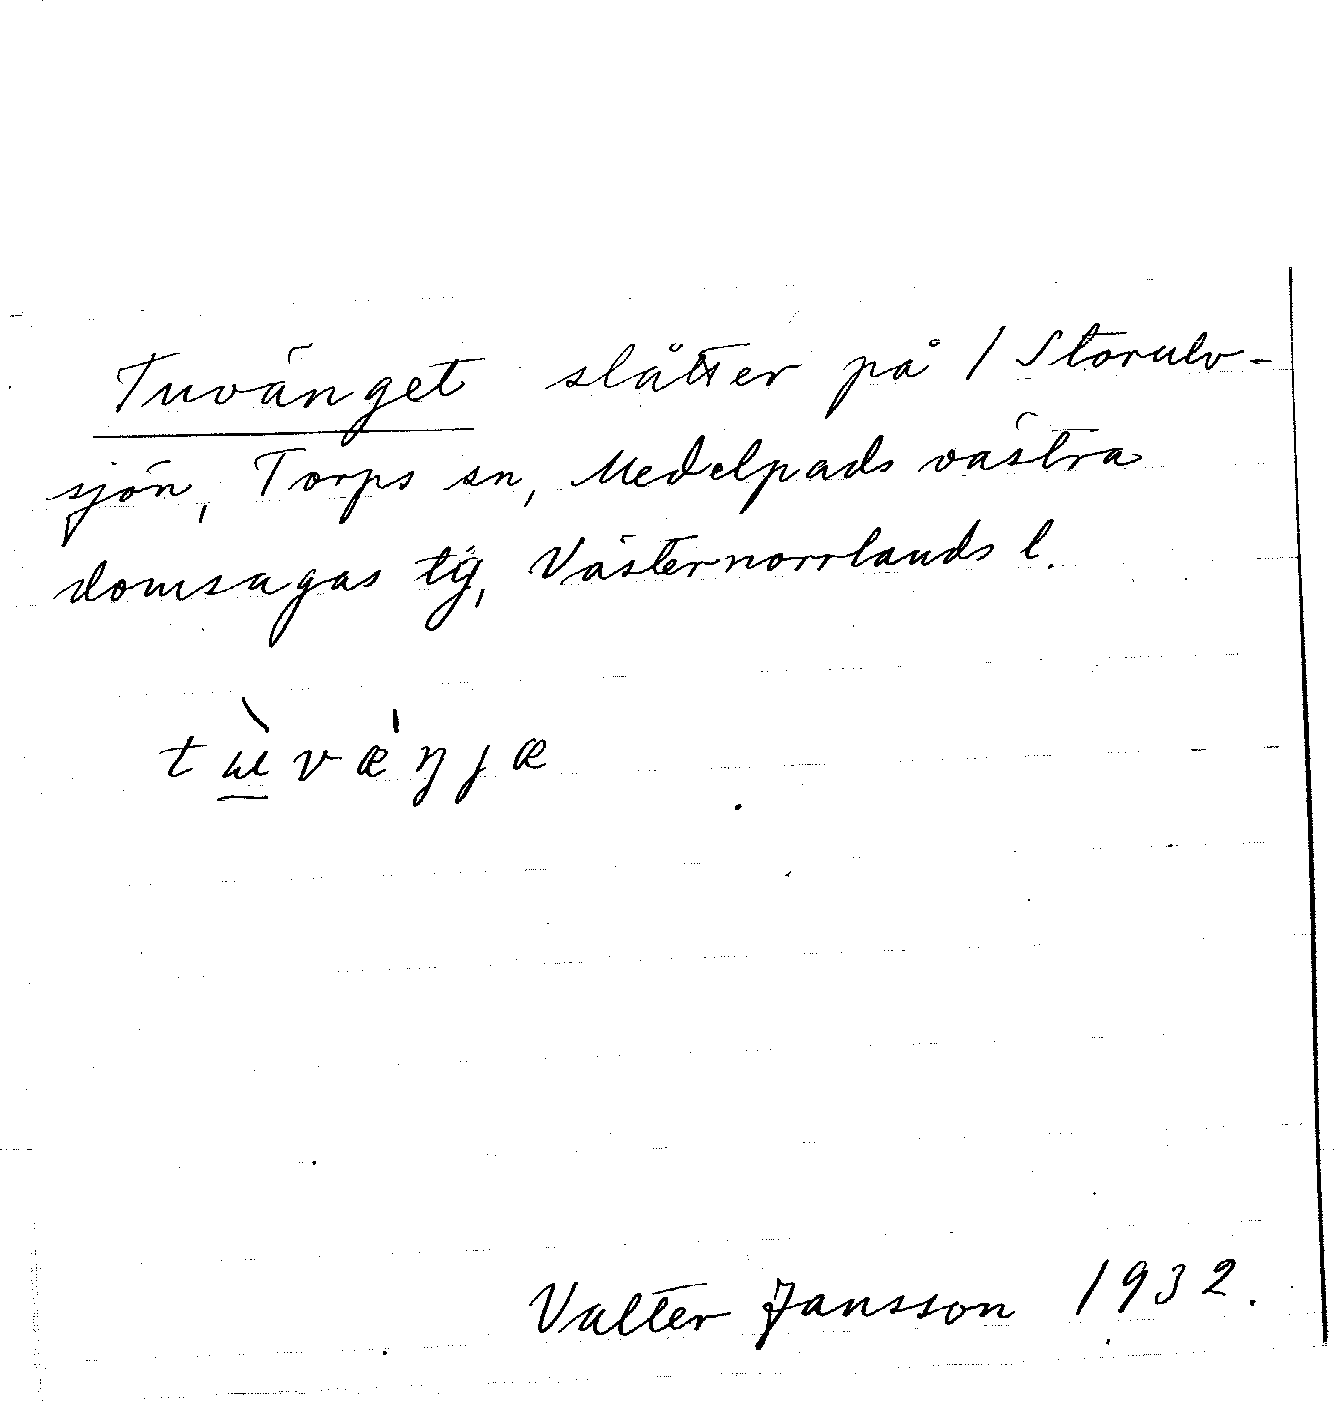 Tuvänget slåtter på 1 Storulv-
sjön, Torps sn, Medelpads västra
domsagas tg, Västernorrlands l.
tùvæ̍ŋjæ
Valter Jansson 1932.